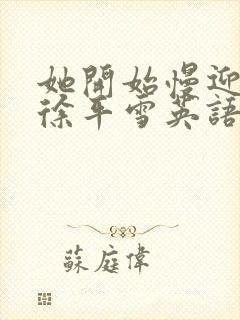 她開始慢迎
徐平雪英語
蘇庭偉